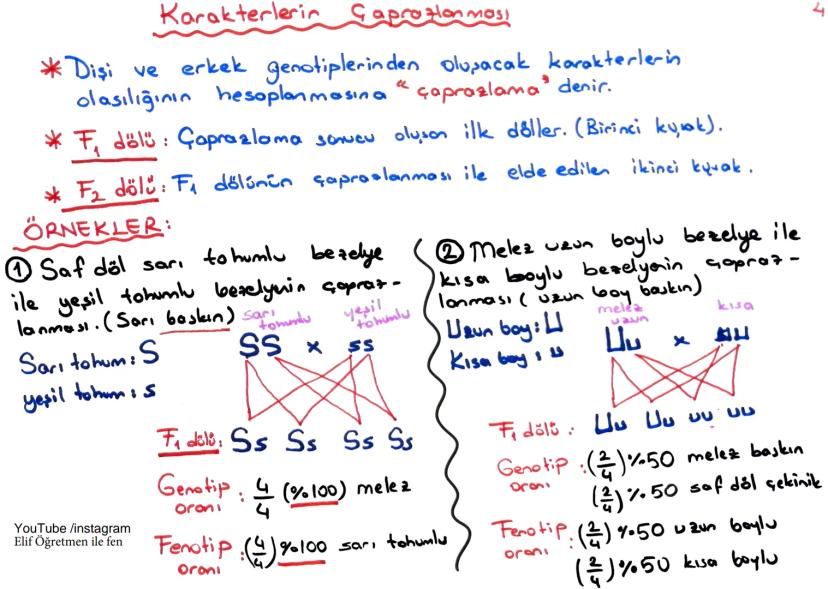 Karakterlerin Çaprazlanması
4
* Dişi ve erkek genotiplerinden oluşacak karakterlerin
olasılığının hesaplanmasına "çaprazlama" denir.
* F₁ dölü: Çaprazlama sonucu oluşan ilk döller. (Birinci kuşak).
* F₂ dölü: F₁ dölünün çaprazlanması ile elde edilen ikinci kuşak.
ÖRNEKLER:
① Saf döl sarı tohumlu bezelye
ile yeşil tohumlu bezelyenin çapraz-
lanması. (Sarı baskın)
sarı tohumlu
yeşil tohumlu
Sarı tohum: S
yeşil tohum: s
SS x ss
F₁ dölü: Ss Ss Ss Ss
Genotip oranı: 4/4 (%100) melez
Fenotip oranı: (4/4) %100 sarı tohumlu
② Melez uzun boylu bezelye ile
kısa boylu bezelyenin çapraz-
lanması (uzun boy baskın)
melez uzun
kısa
Uzun boy: U
Kısa boy: u
Uu x uu
F₁ dölü: Uu Uu uu uu
Genotip oranı: (2/4) %50 melez baskın
(2/4) %50 saf döl çekinik
Fenotip oranı: (2/4) %50 uzun boylu
(2/4) %50 kısa boylu
YouTube /instagram
Elif Öğretmen ile fen